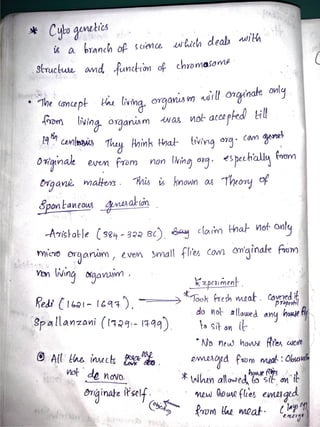 * Cytogenetics
is a branch of science which deals with
structure and function of chromosome
• The concept the living organism will orginate only
from living organism was not accepted till
19th centuries They think that living org. can
originate even from non living org. espectially from
organic matters. This is known as Theory of
Spontaneous generation.
Aristotle (384-322 BC). claim that not only
micro organism, even small flies can originate from
non living organism.
Experiment.
Redi (1621-1697). →
Spallanzani (1729-1799).
* Took fresh meat. covered it properly
do not allowed any house fly
to sit on it.
• No new house flies were
emerged from meat:
All the insects
not de novo.
originate itself.
* When allowed house flies to sit on it
new houseflies emerged
from the meat.